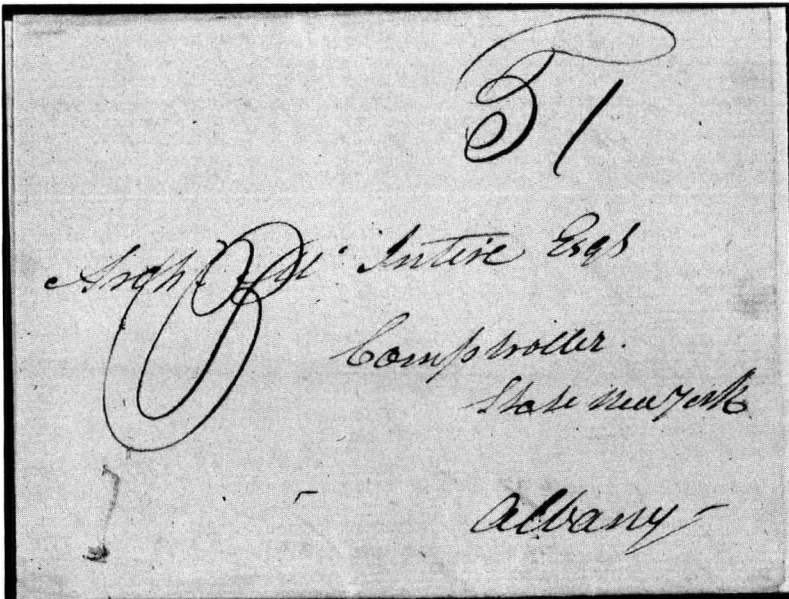 51
Archd Mc Intire Esqr
Comptroller.
State New York
Albany